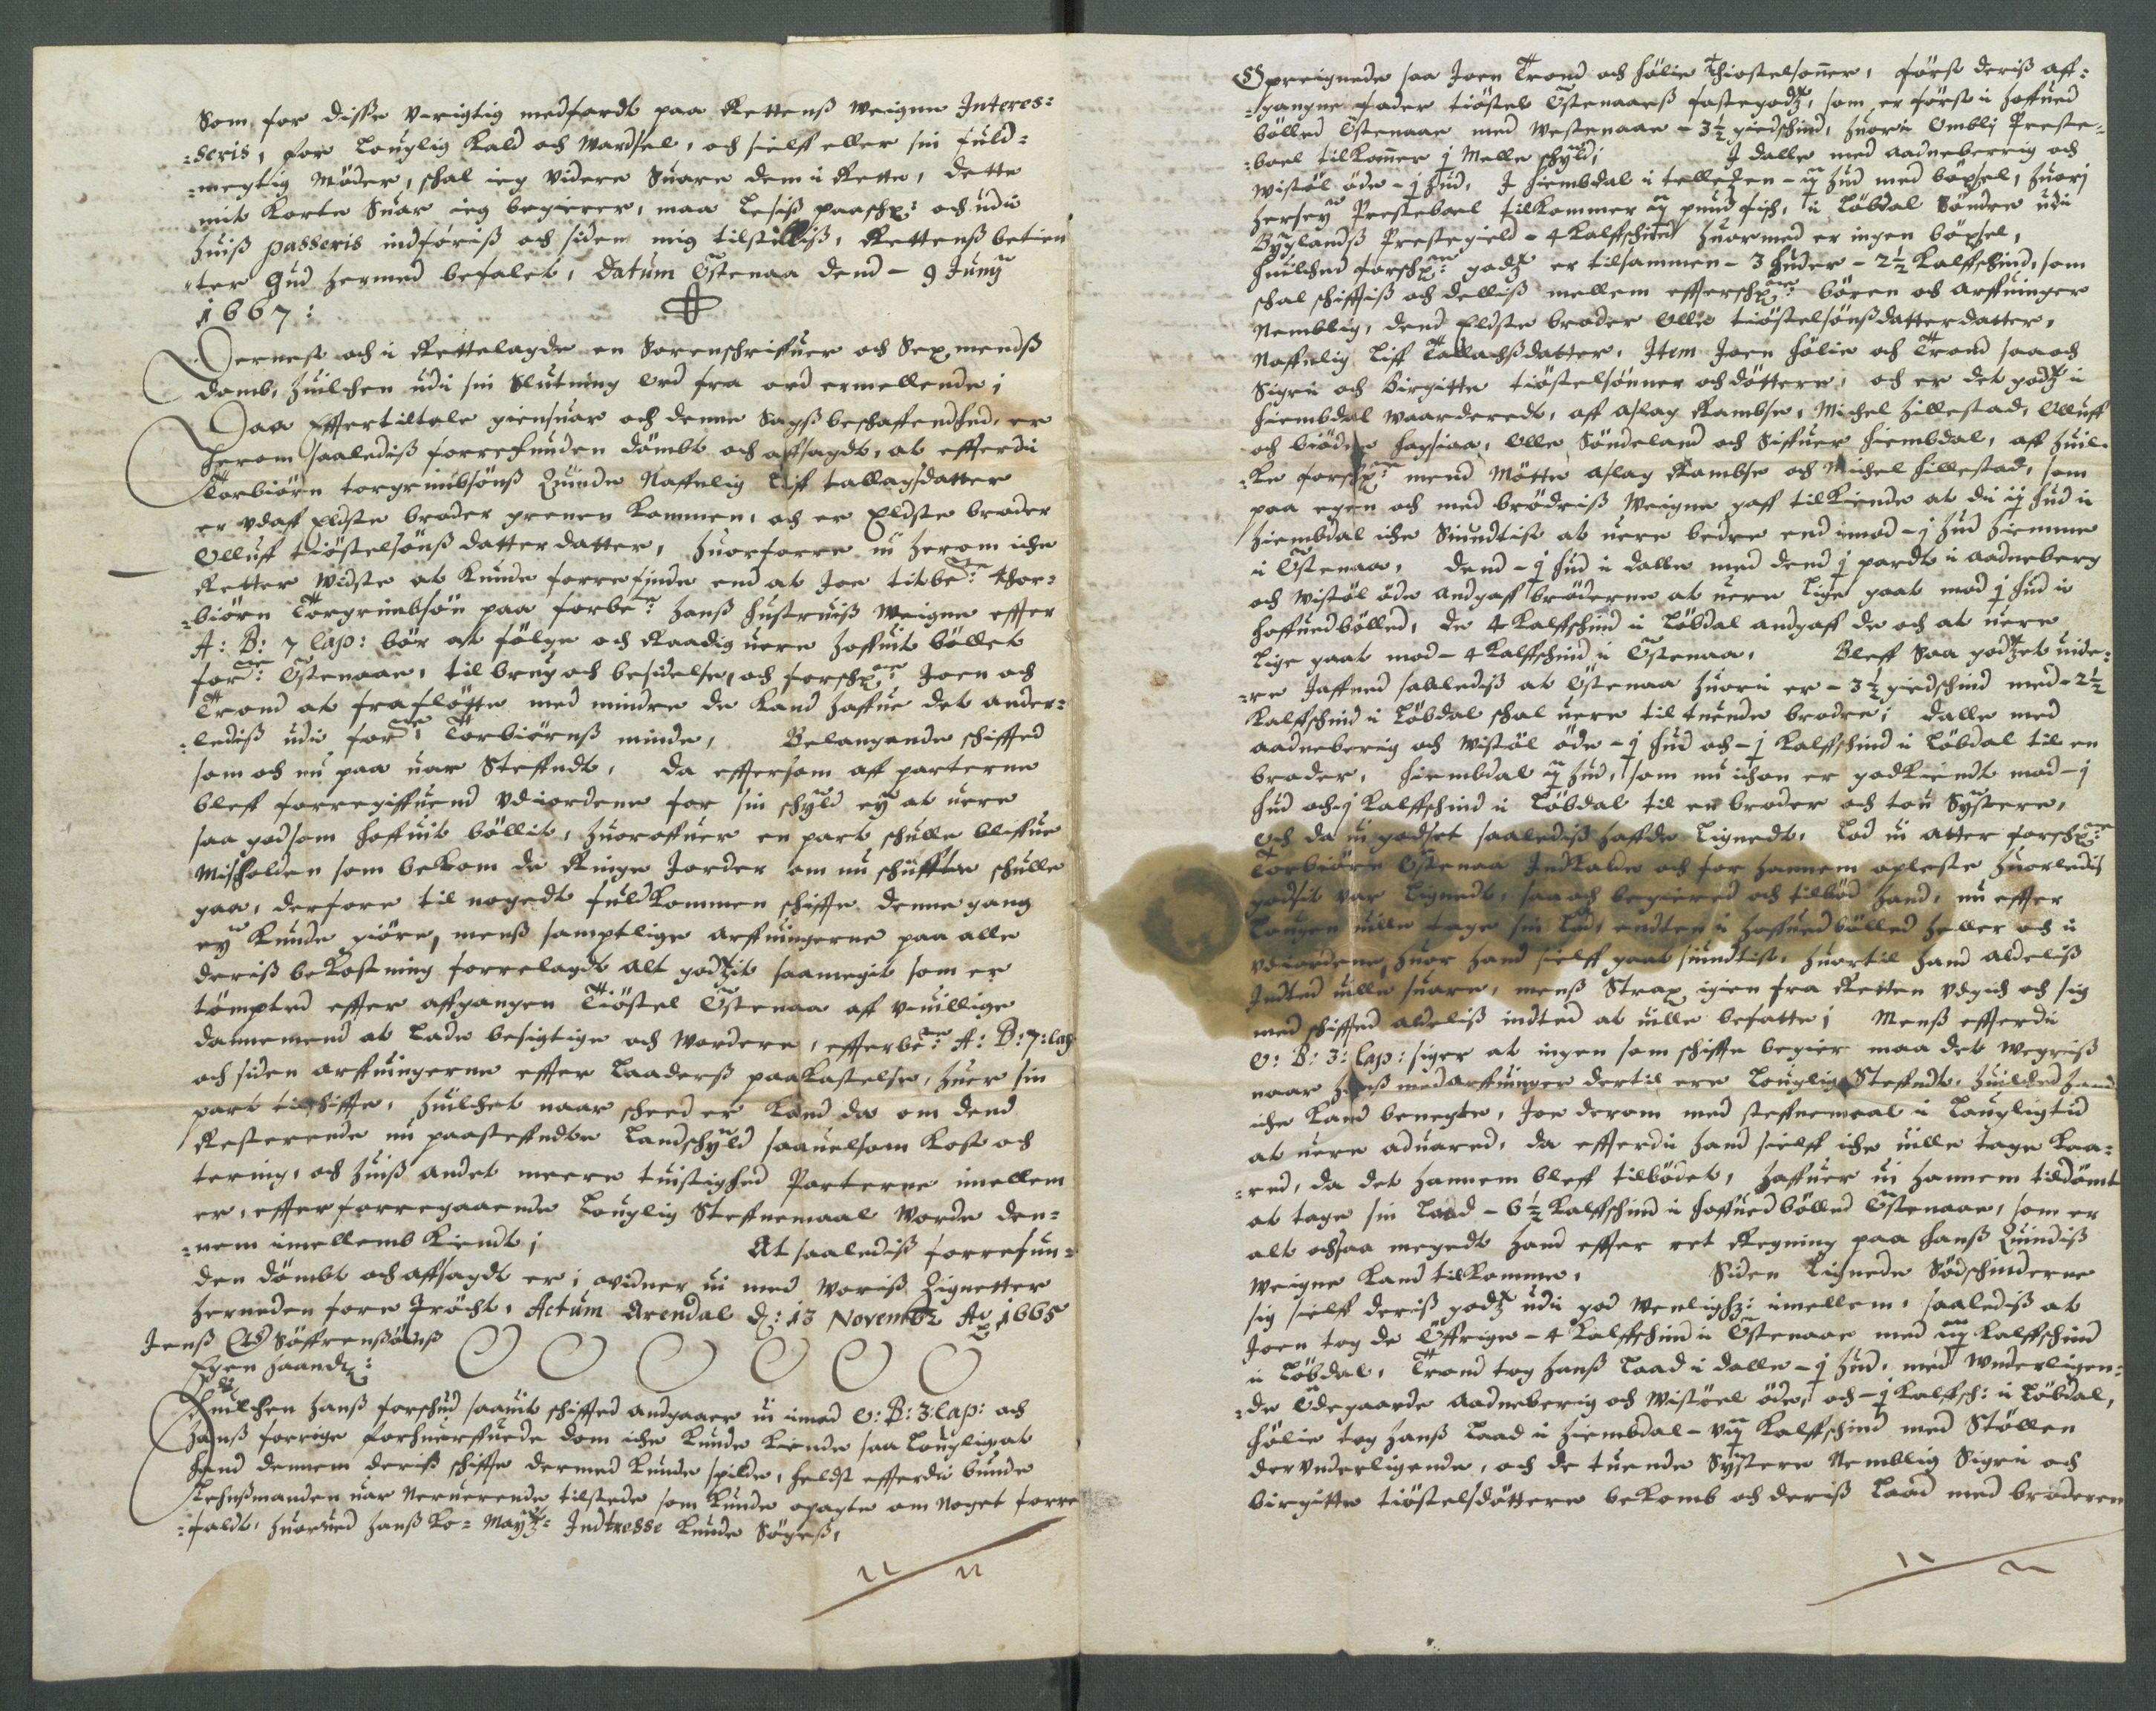 Som for disse Urigtig medfardt paa Rettens Weigne Interes:
:seris, for Louglig Kald och Wardsel, och sielff eller sin fuld:
:megtig Møder, schal ieg Videre Suare dem i Rette, dette
mit Korte Suar ieg begierer, maa Lesiß paaschr: och udi
huiß passeris indføriß och siden mig tilstilliß, Rettenß betien
:ter Gud hermed befalet, Datum Østenaa dend - 9 Junij
1667:
Dernest och i Rettelagde en Sorenschriffuer och Sex mendß
domb, huilchen udi sin Slutning Ord fra ord ermellende;
Paa Effertiltale giensuar och denne Sagß beschaffendhed, er
herom saalediß forrefunden dömbt och affsagdt, at efferdi
Torbiörn torgrimbsönß Quinde Naffnlig Liff tallagsdatter
er udaff Eldste broder grenen kommen, och er Eldste broder
Olluff tiöstelsönß datter datter, huorforre ui herom iche
Retter Widste at kunde forrefinde end at Joe titbe: Thor:
:biörn Torgrimbsön paa forbe: hanß hustruiß Weigne effter
A: B: 7 Cap: bör at fölge och Raadig uere hoffuit böllet
for: Østenaae, til brug och besidelse, och forschr: Joen och
Trond at fraflötte med mindre de kand haffue det ander:
:lediß udi for: Torbiörnß minde, Belangende schifted
som och nu paa uar Steffndt, da effersom aff parterne
bleff forregiffuend Udiordene for sin schyld ey at uere
saa god som hoffuit böllit, huoroffuer en part schulle bliffue
Misholden som bekom de Ringe Jorder om nu schiffte schulle
gaa, derfore til nogedt fuldkommen schiffte denne gang
ey kunde giöre, menß samptlige arffuingerne paa alle
deriß bekostning forrelagdt alt godtzit saamegit som er
tömpted effter affgangen Tiöstel Østenaa aff Uuillige
dannemend at lade besigtige och Wordere, effterbe: A: B: 7: Cap
och siden arffuingerne effter Laaderß paakastelse, huer sin
part tilschiffte, huilchet naar scheed er kand da om dend
Resterende nu paasteffndte Landschyld saauelsom kost och
tering, och huiß andet meere tuistighed Parterne imellem
er, effter forregaaende Louglig Steffnemaal Worde den:
:nem imellemb kiendt; At saalediß forrefun:
den dömbt och affsagdt er; vidner ui med Woriß Zignetter
herneden fore tröcht, Actum Arendal d: 13 Novemb Ao 1665
Jenß Söffrensönß
Egen haand:
Huilchen hanß forschud saauit schiffted andgaaer ui imod O: B: 3: Cap: och
hanß forrige forhuerffuede dom iche kunde kiende saa Lougligat
hand dennem deriß schiffte dermed kunde spilde, heldst efferdi bunde
Lehnßmanden uar neruerende tilstede som kunde opagte om noget forre
:faldt, huorued hanß Ko: Maytz: Indtresse kunde Söges,
Opreignede saa Joen Trond och Hölie Thiostelsönner, först deriß aff:
:gangne fader tiöstel Østenaaeß fastegodtz, som er först i hoffued
bölled Østenaae med Westenaae - 3½ giedschind, huori Omblj Preste:
:boel tilkommer j Melle schyld; J dalle med aadneberrig och
Wistöl øde - j hud, J Hiembdal i tellezen - ij hud med böxsel, huorj
hersey Prestebool tilkommer ij pund fisch, i Löbdal Söndre udi
Byglandß Prestegield - 4 kalffschind huormed er ingen böxsel,
huilched forschr: godtz er tilsammen - 3 Huder - 2½ kalffschind, som
schal schifftiß och delliß mellem efferschr: börn och arffuinger
Nemblig, dend Eldste broder Olle tiöstelsönß datterdatter,
Naffnlig Liff Tallachßdatter, Item Joen Hölie och Trond saa och
Sigri och Birgitte tiöstelsönner och döttere, och er det godtz i
Hiembdal waarderedt, aff Aslag Rambse, Michel Hillestad, Olluff
och biörn Hagsiaa, Olle Söndeland och Siffuer Hiembdal, aff huil:
:cke forschr: mend Mötte Aslag Rambse och Michel Hillestad, som
paa egen och med brödriß Weigne gaff tilkiende at di ij hud i
hiembdal iche Siuntist at uere bedre end imod - j hud hiemme
i Østenaa, Dend - j hud i dalle med dend j pardt i aadneberg
och Wistöl øde andgaff bröderne at uere Lige gaat mod j hud i
hoffuedbölled, de 4 kalffschind i Löbdal andgaff de och at uere
Lige gaat mod - 4 kalffschind i Østenaa, Bleff Saa godtzet uide:
:re Jaffned saalediß at Østenaa huori er - 3½ giedschind med - 2½
kalffschind i Löbdal schal uere til tuende brødre; Dalle med
aadneberig och Wistöl øde - j hud och - j kalffschind i Löbdal til en
broder, Hiembdal ij hud, som nu ichon er godkiendt mod - j
hud och j kalffschind i Löbdal til en broder och tou Systere,
Och da ui godset saalediß haffde Lignedt, Lod ui atter forschr:
Torbiörn Østenaa Indkalde och for hannem opleste huorledis
godsit var Lignedt, saa och begiered och tilböd hand, nu effter
Lougen uille tage sin Lod, endten i hoffuedbölled heller och i
udiordene, huor hand sielff gaat siuntist, huortil hand aldeliß
Indted uille suare, menß Strax igien fra Retten Udgich och sig
med schiffted aldeliß indted at uille befatte; Menß efferdi
O: B: 3: Cap: siger at ingen som schiffte begier maa det Wegriß
naar hanß medarffuinger dertil ere Louglig Steffndt, huilched hand
iche kand benegte, Joe derom med steffnemaal i Lougligtid
at uere aduared, da efferdi hand sielff iche uille tage kaa:
:red, da det hannem bleff tilbödet, haffuer ui hannem tildömt
at tage sin Laad - 6½ kalffschind i hoffuedbölled Østenaae, som er
alt ochsaa megedt hand effter ret Regning paa hanß Quindiß
Weigne kand tilkomme, Siden Lignede Södschinderne
sig sielff deriß godtz udi god Wenlighz: imellem, saalediß at
Joen tog de Øffrige - 4 kalffschind i Østenaae med iij kalffschind
i Löbdal, Trond tog hanß Laad i dalle - j hud, med Underligen:
:de Ødegaarde Aadneberig och Wistöel øde, och - j kalffsch: i Löbdal,
Hölie tog hanß Laad i hiembdal - Uij kalffschind med Stöllen
derunderligende, och de tuende Systere Nemblig Sigri och
birgitte tiöstelsdöttere bekomb och deriß Laad med broderen